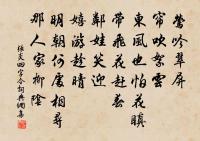 鶯吟翠屏
簾吹絮雲
東風也怕花瞋
帶飛花趕春
鄰娃笑迎
嬉游趁晴
明朝何處相尋
那人家柳陰
張炎四字令詞